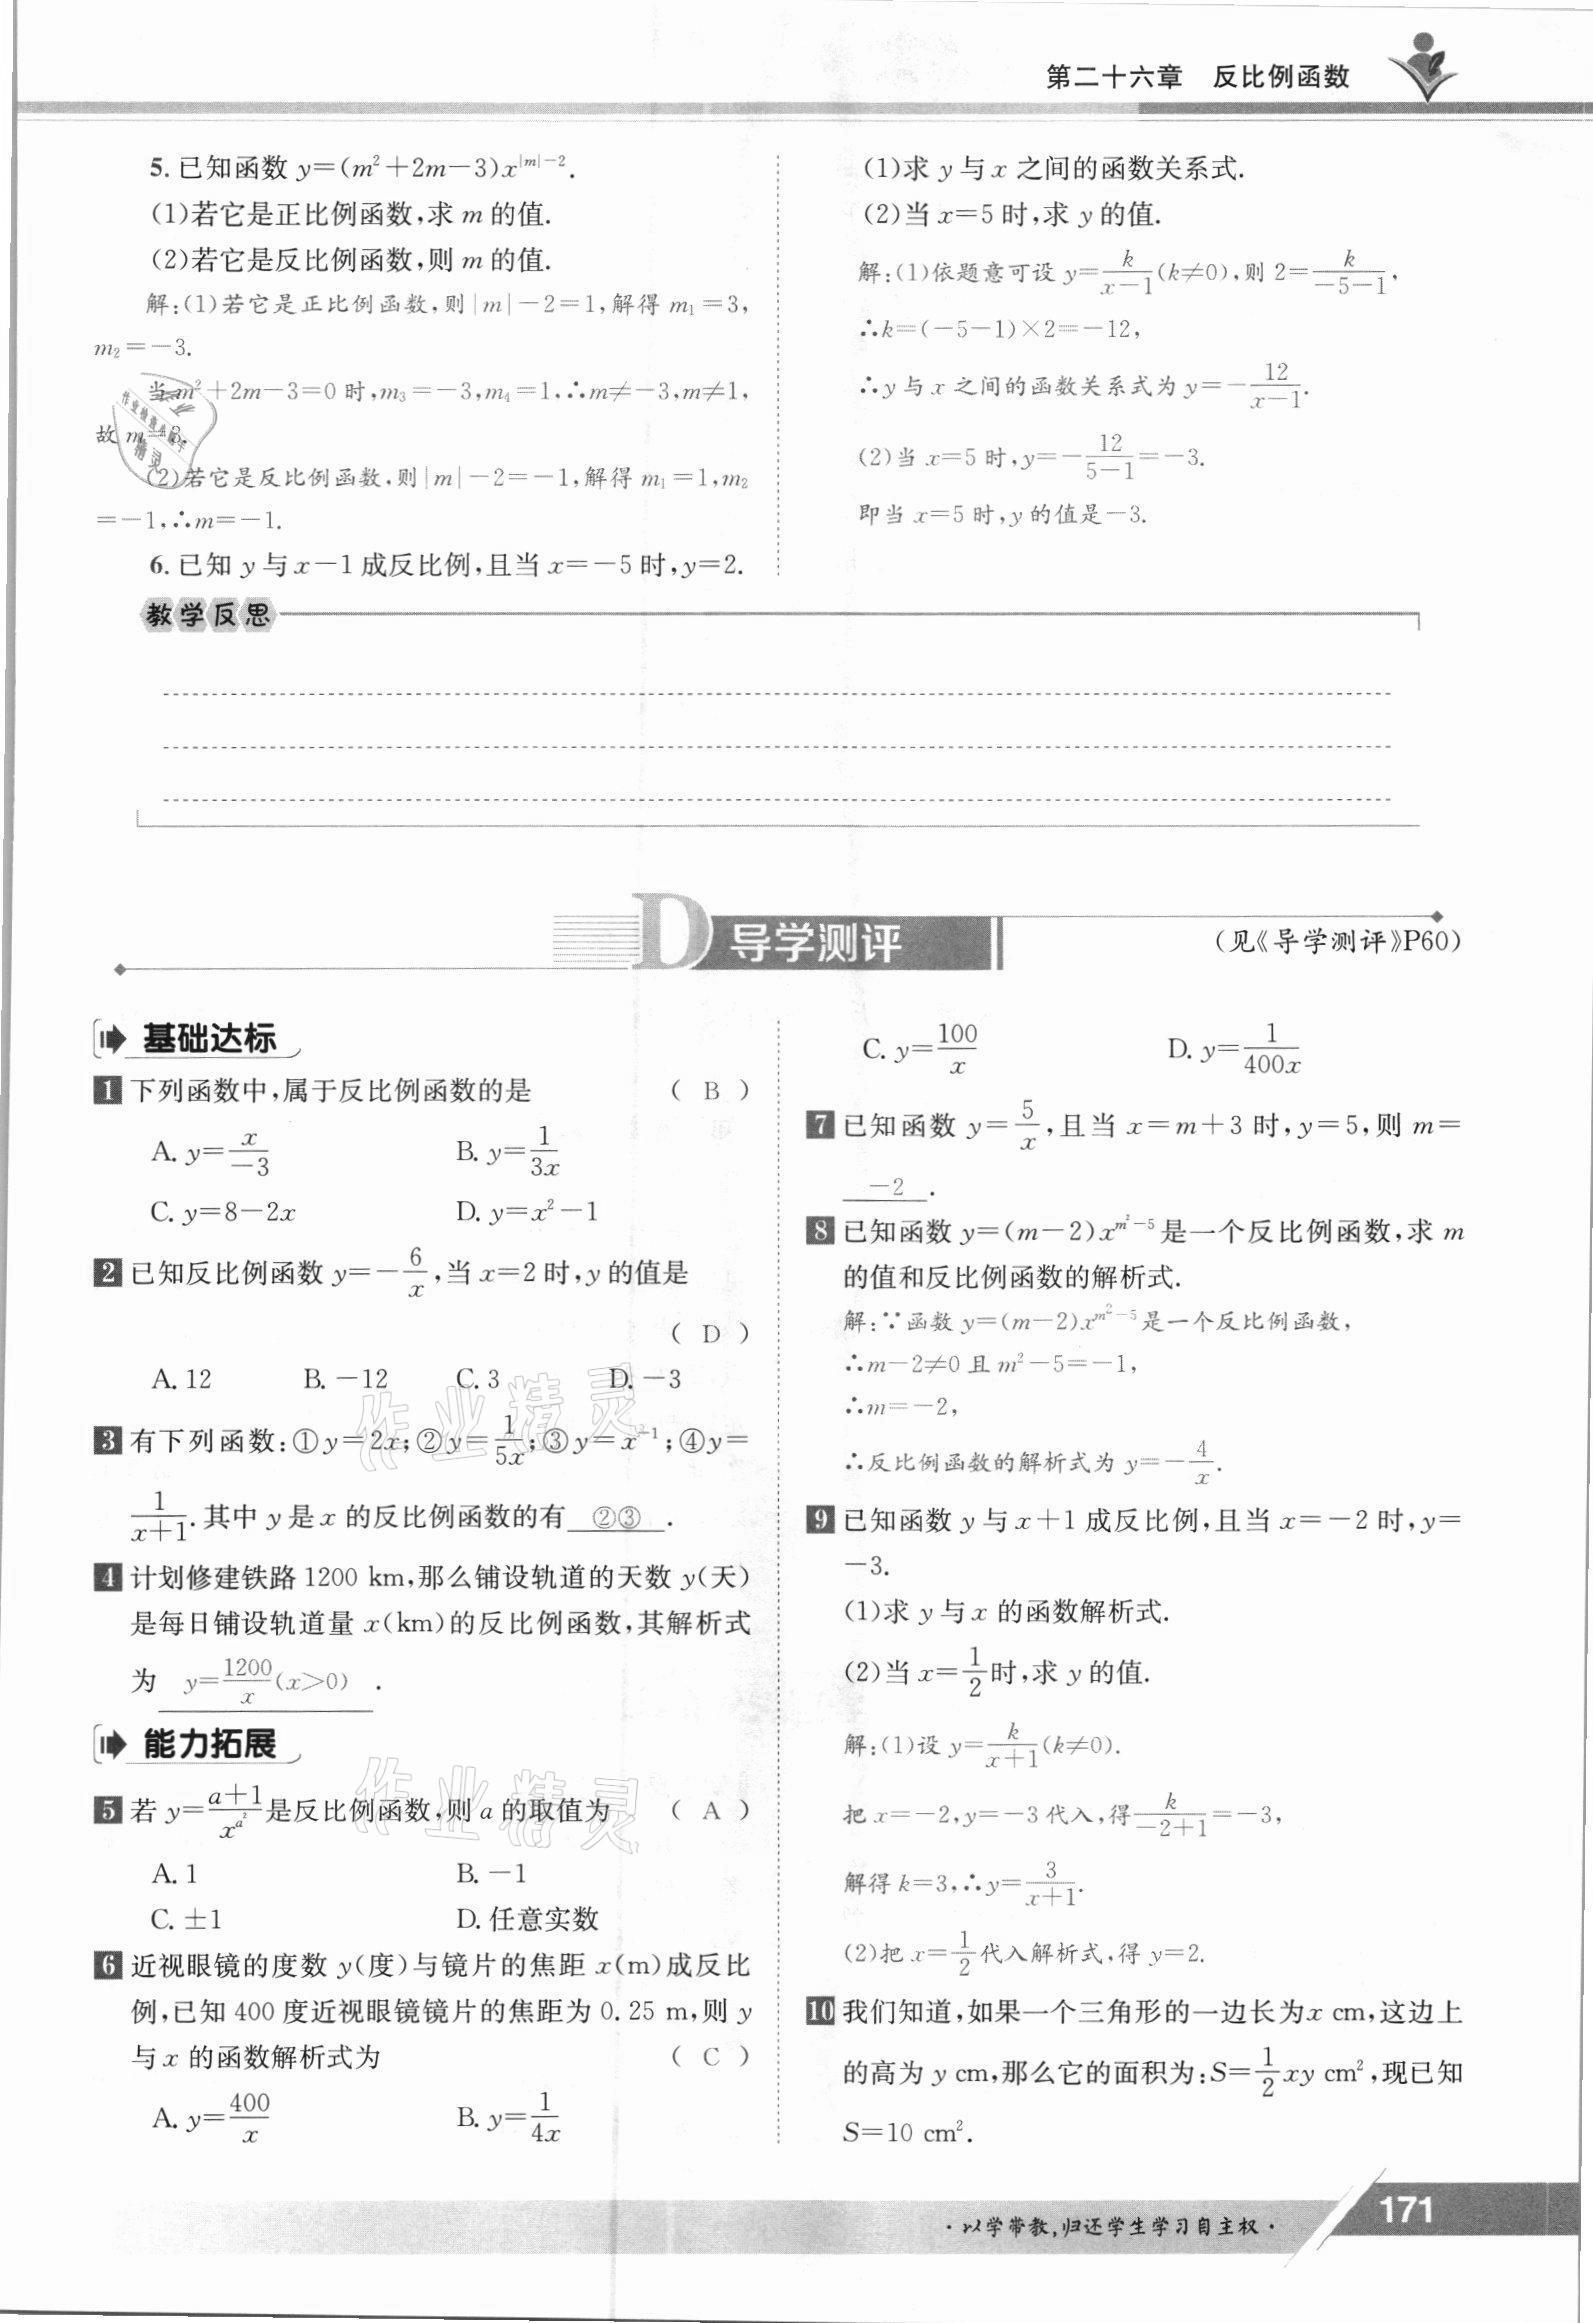 第二十六章 反比例函数
5. 已知函数 y=(m²+2m-3)x^{|m|-2}.
(1)若它是正比例函数,求 m 的值.
(2)若它是反比例函数,则 m 的值.
解:(1)若它是正比例函数,则|m|-2=1,解得 m₁=3,
m₂=-3.
当 m²+2m-3=0 时,m₃=-3,m₄=1,∴m≠-3,m≠1,
故 m=3.
(2)若它是反比例函数,则|m|-2=-1,解得 m₁=1,m₂
=-1,∴m=-1.
6. 已知 y 与 x-1 成反比例,且当 x=-5 时,y=2.
(1)求 y 与 x 之间的函数关系式.
(2)当 x=5 时,求 y 的值.
解:(1)依题意可设 y=k/(x-1)(k≠0),则 2=k/(-5-1),
∴k=(-5-1)×2=-12,
∴y 与 x 之间的函数关系式为 y=-12/(x-1).
(2)当 x=5 时,y=-12/(5-1)=-3.
即当 x=5 时,y 的值是-3.
教学反思
D 导学测评
(见《导学测评》P60)
基础达标
1 下列函数中,属于反比例函数的是 ( B )
A. y=x/(-3) B. y=1/(3x)
C. y=8-2x D. y=x²-1
2 已知反比例函数 y=-6/x,当 x=2 时,y 的值是
( D )
A. 12 B. -12 C. 3 D. -3
3 有下列函数:①y=2x;②y=1/(5x);③y=x⁻¹;④y=
1/(x+1).其中 y 是 x 的反比例函数的有 ②③ .
4 计划修建铁路 1200 km,那么铺设轨道的天数 y(天)
是每日铺设轨道量 x(km)的反比例函数,其解析式
为 y=1200/x(x>0) .
能力拓展
5 若 y=(a+1)/x^{a²}是反比例函数,则 a 的取值为 ( A )
A. 1 B. -1
C. ±1 D. 任意实数
6 近视眼镜的度数 y(度)与镜片的焦距 x(m)成反比
例,已知 400 度近视眼镜镜片的焦距为 0.25 m,则 y
与 x 的函数解析式为 ( C )
A. y=400/x B. y=1/(4x)
C. y=100/x D. y=1/(400x)
7 已知函数 y=5/x,且当 x=m+3 时,y=5,则 m=
-2 .
8 已知函数 y=(m-2)x^{m²-5}是一个反比例函数,求 m
的值和反比例函数的解析式.
解:∵函数 y=(m-2)x^{m²-5}是一个反比例函数,
∴m-2≠0 且 m²-5=-1,
∴m=-2,
∴反比例函数的解析式为 y=-4/x.
9 已知函数 y 与 x+1 成反比例,且当 x=-2 时,y=
-3.
(1)求 y 与 x 的函数解析式.
(2)当 x=1/2时,求 y 的值.
解:(1)设 y=k/(x+1)(k≠0).
把 x=-2,y=-3 代入,得k/(-2+1)=-3,
解得 k=3,∴y=3/(x+1).
(2)把 x=1/2代入解析式,得 y=2.
10 我们知道,如果一个三角形的一边长为x cm,这边上
的高为 y cm,那么它的面积为:S=1/2xy cm²,现已知
S=10 cm².
·以学带教,归还学生学习自主权·
171
作业精灵
作业精灵